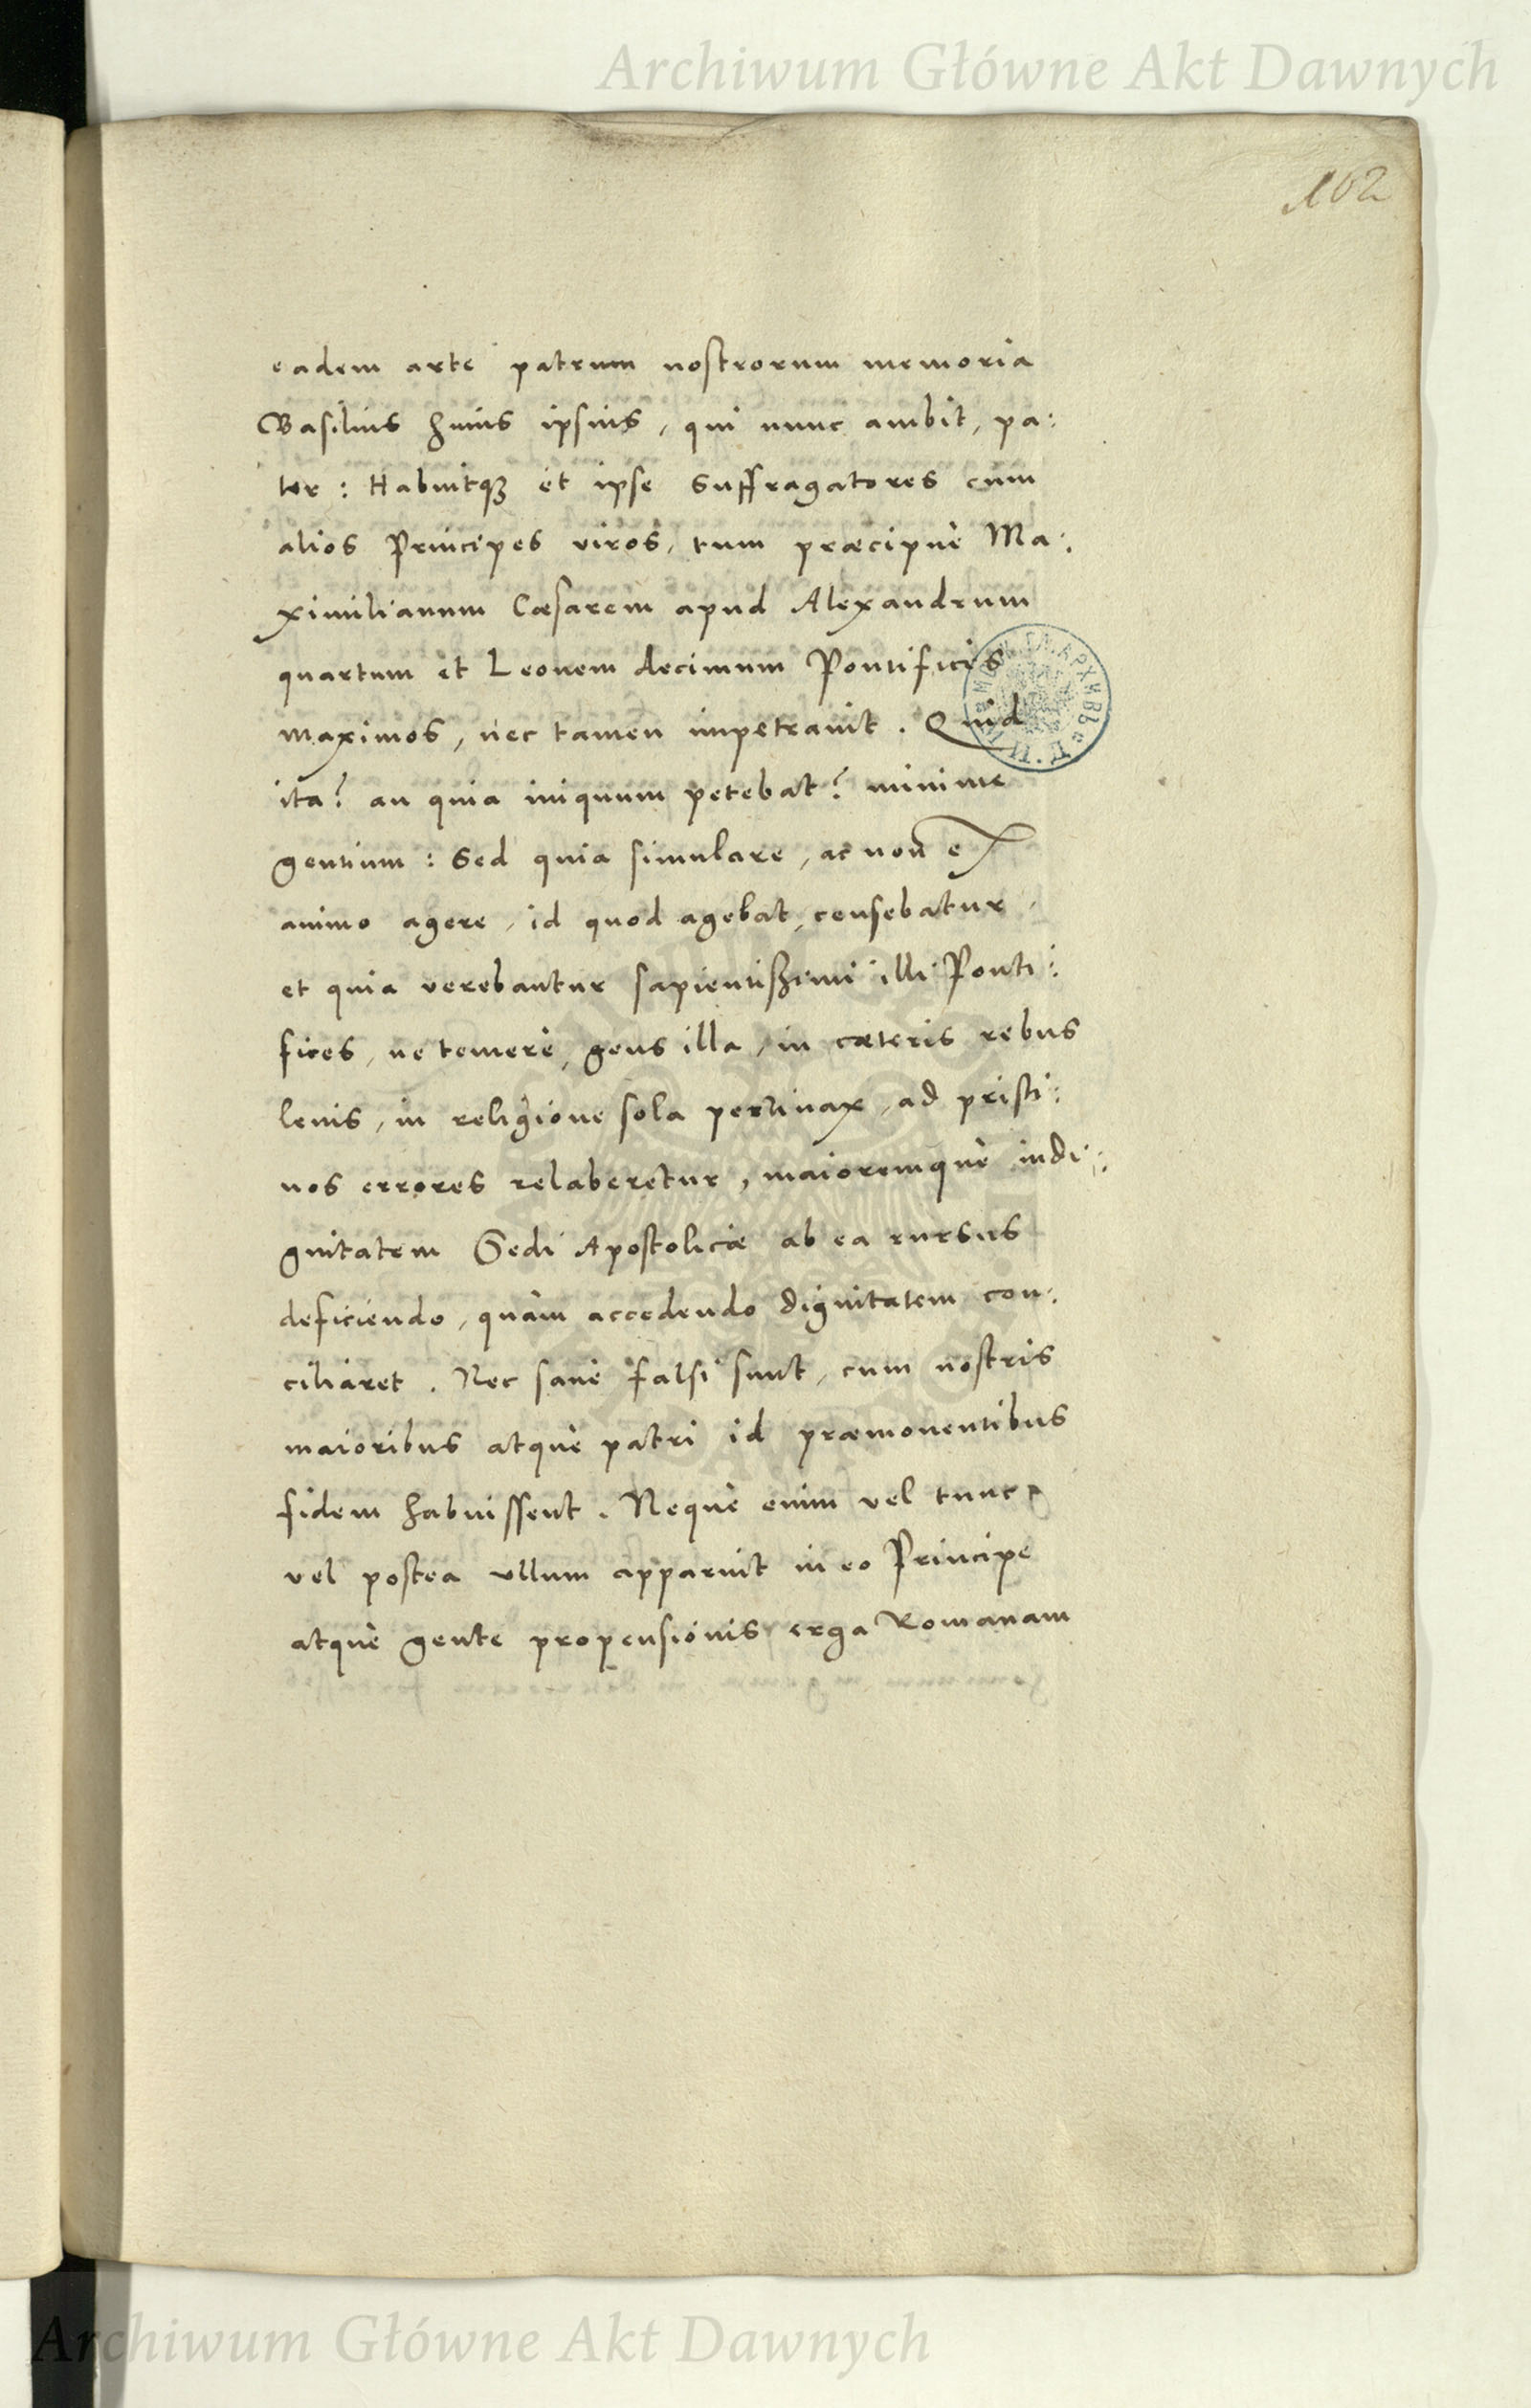 Archiwum Główne Akt Dawnych
102
eadem arte patrum nostrorum memoria
Basilius huius ipsius, qui nunc ambit, pa:
ter: Habuitqꝫ et ipse suffragatores cum
alios Principes viros, tum præcipuè Ma:
ximilianum Cæsarem apud Alexandrum
quartum et Leonem decimum Pontifices
maximos, nec tamen impetrauit. Quid
ita? an quia iniquum petebat? minime
gentium: Sed quia simulare, ac non ex
animo agere, id quod agebat, censebatur,
et quia verebantur sapientißimi illi Ponti:
fices, ne temerè, gens illa, in cæteris rebus
leuis, in religione sola pertinax, ad pristi:
nos errores relaberetur, maioremquè indi:
gnitatem Sedi Apostolicæ ab ea rursus
deficiendo, quàm accedendo dignitatem con:
ciliaret. Nec sanè falsi sunt, cum nostris
maioribus atquè patri id præmonentibus
fidem habuissent. Nequè enim vel tunc
vel postea vllum apparuit in eo Principe
atquè gente propensionis erga Romanam
Archiwum Główne Akt Dawnych